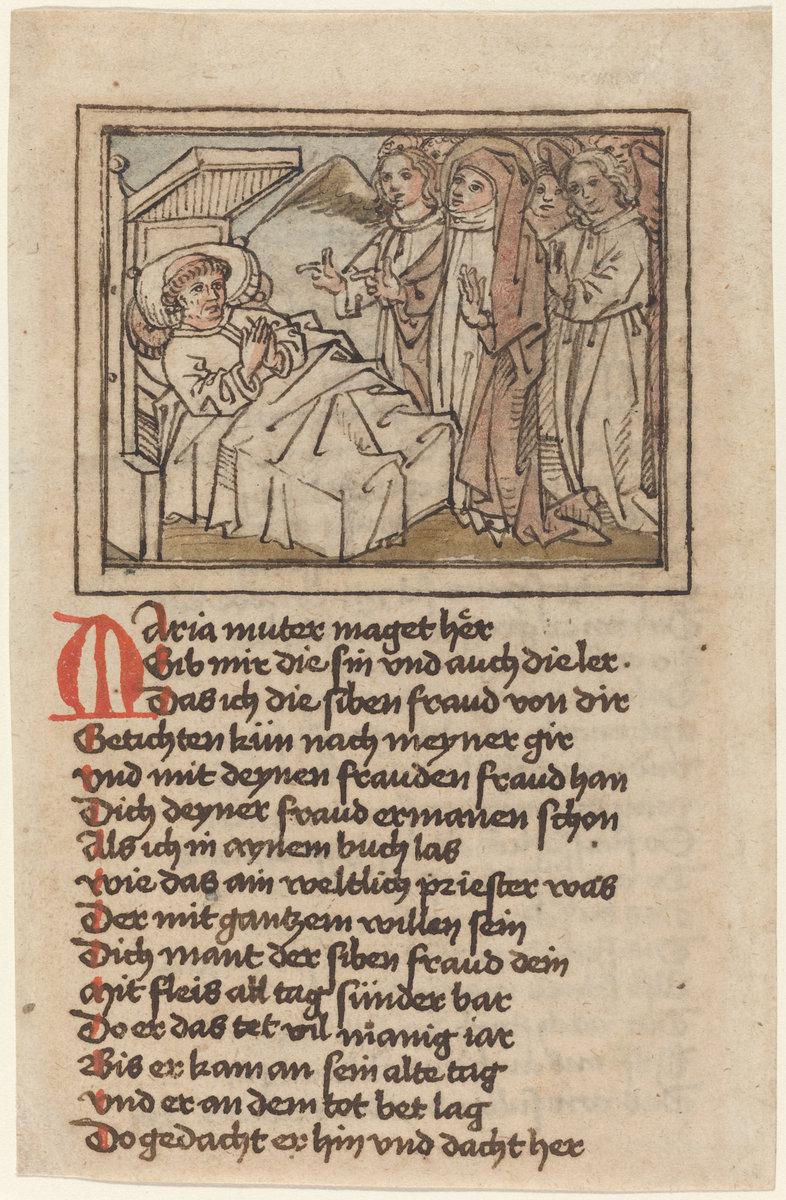 Maria muter maget her
Gib mir die sin vnd auch die ler.
Das ich die siben fraud von dir
Getichten kün nach meyner gir
vnd mit deynen frauden fraud han
Dich deyner fraud ermanen schon
Als ich in aynem buch las
wie das ain weltlich priester was
Der mit gantzem willen sein
Dich mant der siben fraud dein
mit fleis all tag sünder bar
Do er das tet vil manig iar
Bis er kam an sein alte tag
vnd er an dem tot bet lag
Do gedacht er hin vnd dacht her